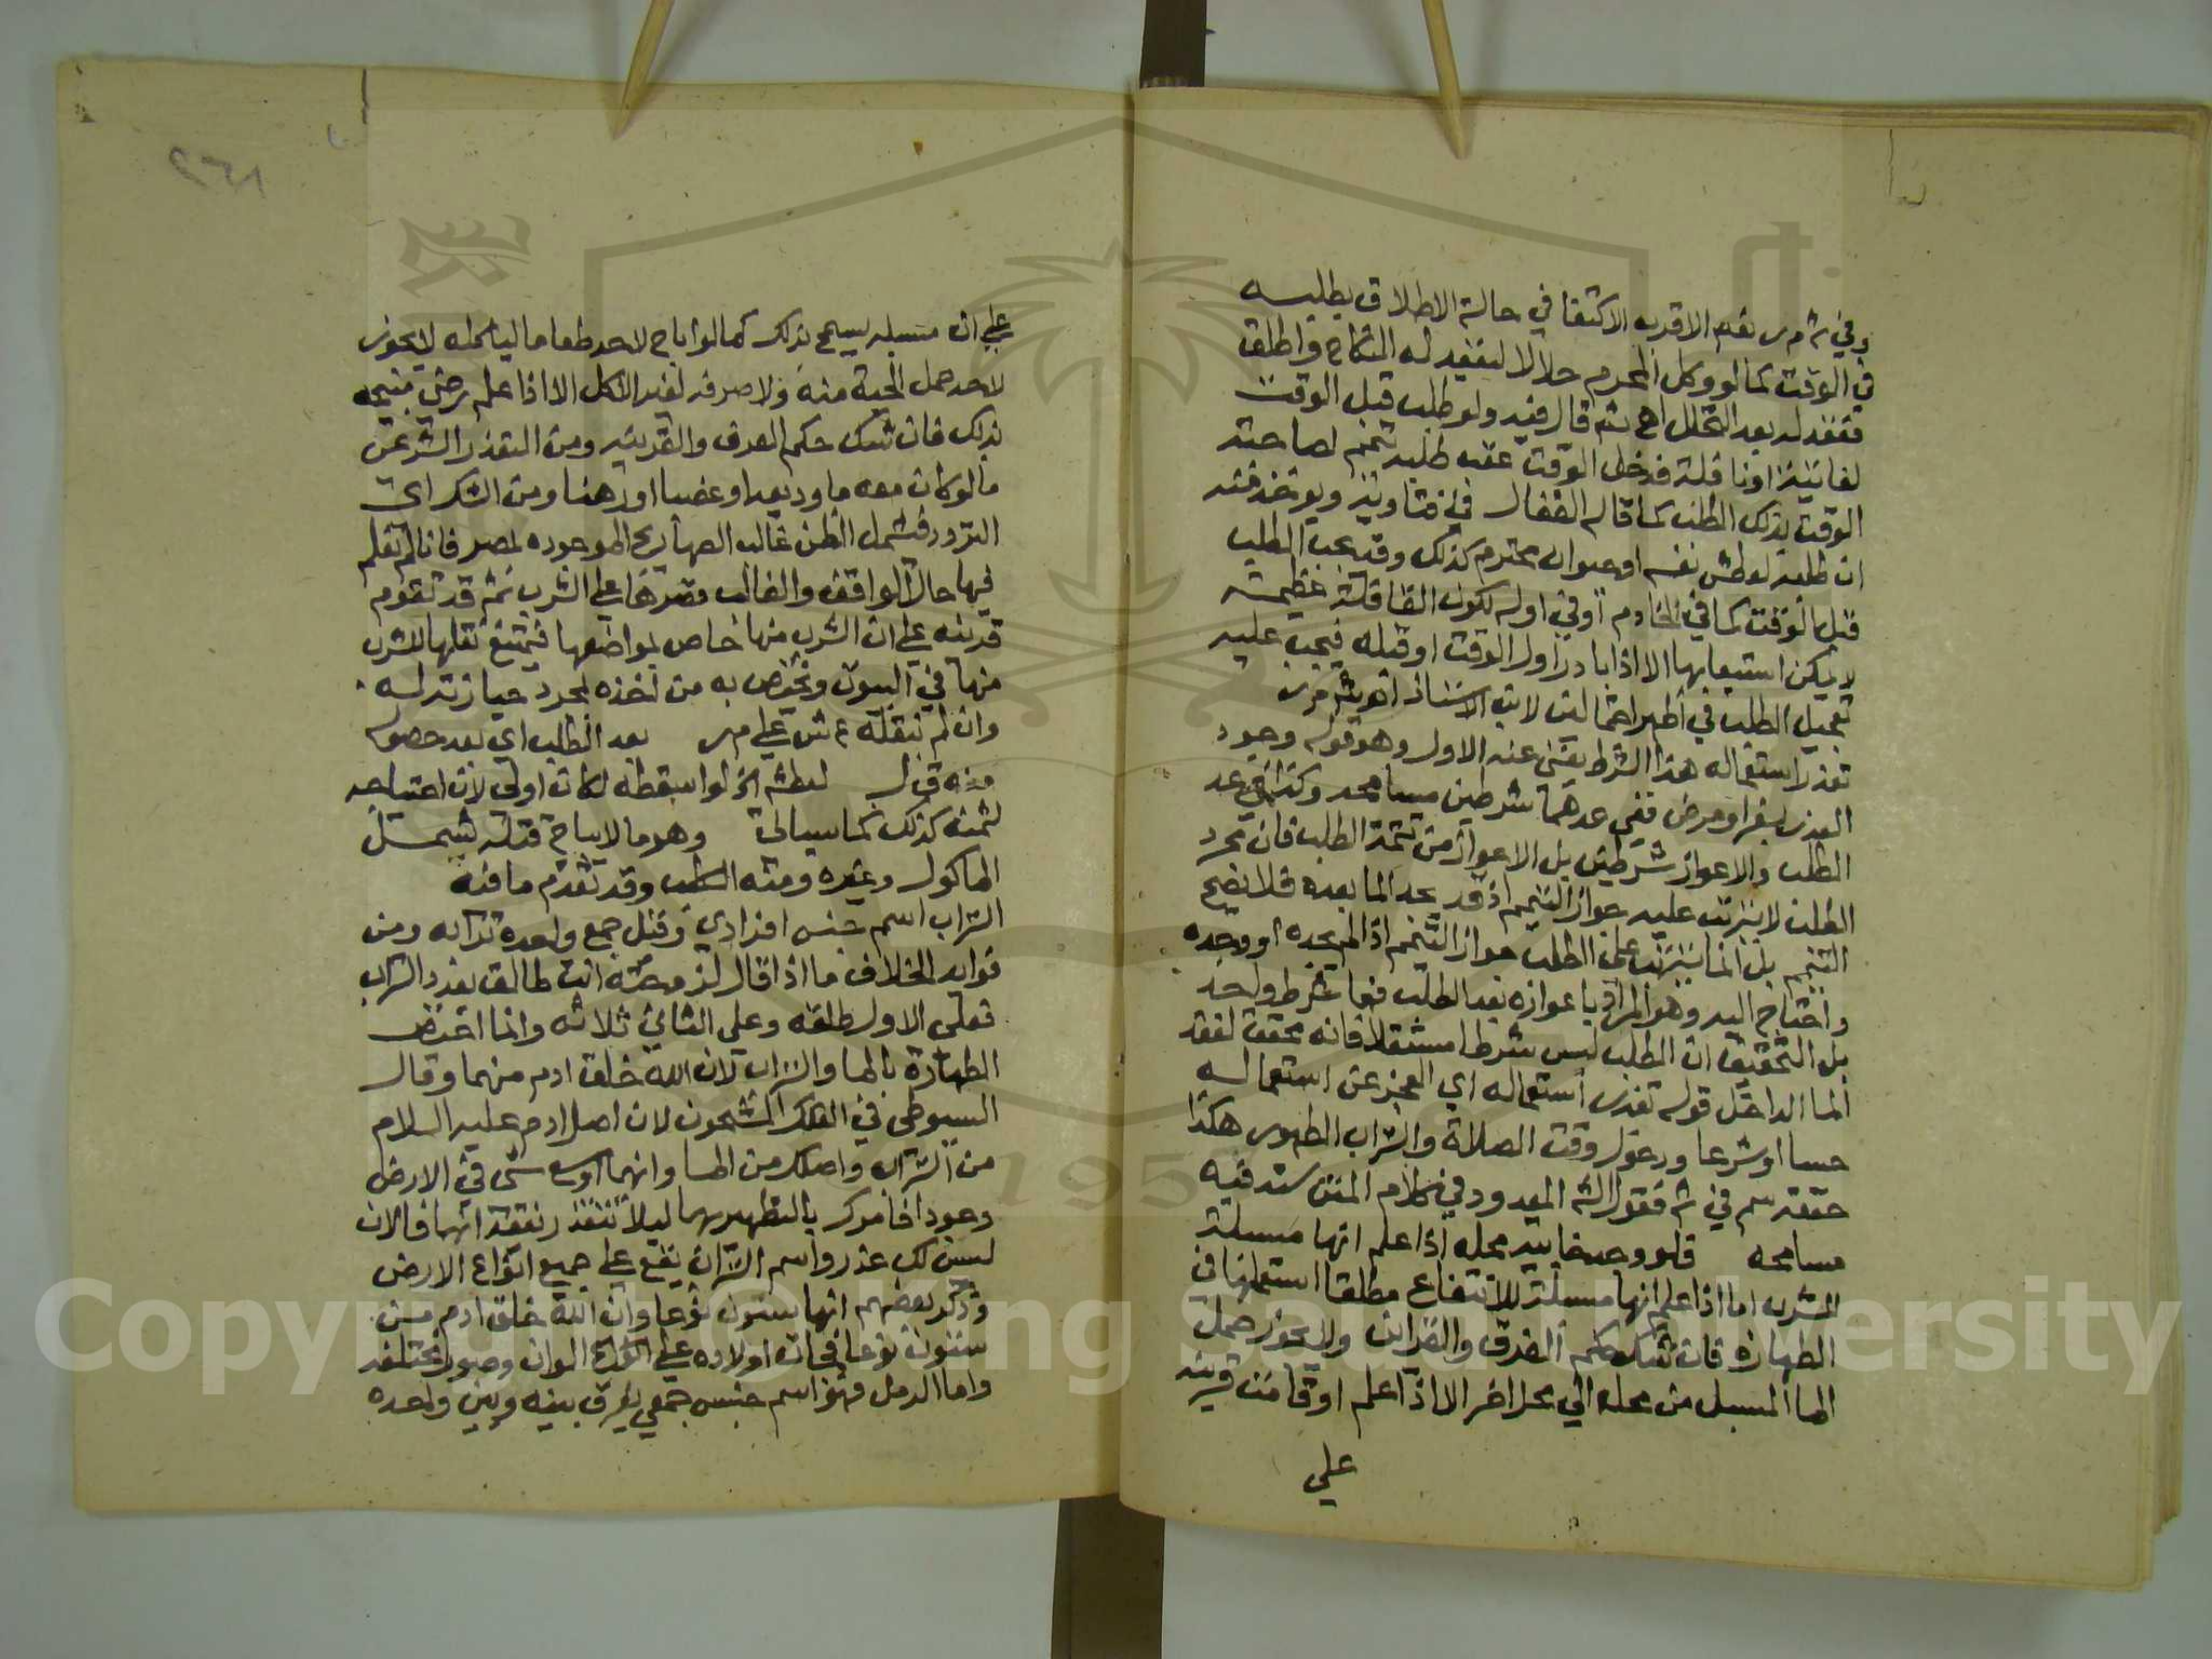 وفي شرح م ر نعم الاقرب الاكتفا في حالة الاطلاق بطلبه
في الوقت كما لو وكل المحرم حلالا ليعقد له النكاح واطلق
فعقد له بعد التحلل اهـ ثم قال فيه ولو طلب قبل الوقت
لفائتة او نافلة فدخل الوقت عقب طلبه تيمم لصاحبة
الوقت بذلك الطلب كما قاله القفال في فتاويه ويؤخذ منه
ان طلبه لعطش نفسه او حيوان محترم كذلك وقد يجب الطلب
قبل الوقت كما في الخادم او في اوله لكون القافلة عظيمة
لا يمكن استيعابها الا اذا بادر اول الوقت او قبله فيجب عليه
تعجيل الطلب في اظهر احتمالين لابن الاستاذ انتهى شرح م ر
تعذر استعماله هذا الشرط يغني عنه الاول وهو قوله وجود
العذر بسفر او مرض ففي عدهما شرطين مسامحة وكذا في عد
الطلب والاعواز شرطين بل الاعواز من تتمة الطلب فان مجرد
الطلب لا يترتب عليه جواز التيمم اذ قد يجد الما بعده فلا يصح
التيمم بل انما يترتب على الطلب جواز التيمم اذا لم يجده او وجده
واحتاج اليه وهو المراد باعوازه بعد الطلب فهما شرط واحد
بل التحقيق ان الطلب ليس شرطا مستقلا فانه محقق لفقد
الما الداخل قوله تعذر استعماله اي العجز عن استعماله
حسا او شرعا ودخول وقت الصلاة والتراب الطهور هكذا
حققه سم في شرح فقول الش المعدود في كلام المتن ستة فيه
مسامحة فلو وجد خابية محله اذا علم انها مسبلة
للشرب اما اذا علم انها مسبلة للانتفاع مطلقا استعملها في
الطهارة فان شك حكم العرف والقرائن ولا يجوز حمل
الما المسبل من محله الي محل اخر الا اذا علم او قامت قرينه
علي
٢٦٨
علي ان مسبله يسمح بذلك كما لو اباح لاحد طعاما لياكله لا يجوز
لاحد حمل الحبة منه ولا صرفه لغير الاكل الا اذا علم رضي مبيحه
بذلك فان شك حكم العرف والقرينه ومن التعذر الشرعي
ما لو كان معه ما وديعه او غصبا او رهنا ومن الشك اي
التردد فيشمل الظن غالب الصهاريج الموجوده بمصر فانا لم نعلم
فيها حال الواقف والغالب قصرها علي الشرب ثم قد تقوم
قرينه علي ان الشرب منها خاص بمواضعها فيمتنع نقلها للشرب
منها في البيوت ويختص به من اخذه لمجرد حيازته له
وان لم ينقله ع ش علي م ر بعد الطلب اي بعد حصوله
منه قوله لعطشه الخ لو اسقطه لكان اولى لان احتياجه
لثمنه كذلك كما سياتي وهو ما لا يباح قتله يشمل
الماكول وغيره ومنه الكلب وقد تقدم ما فيه
التراب اسم جنس افرادي وقيل جمع واحده ترابه ومن
فوائد الخلاف ما اذا قال لزوجته انت طالق بعدد التراب
فعلى الاول طلقه وعلي الثاني ثلاثه وانما اختص
الطهارة بالما والتراب لان الله خلق ادم منهما وقال
السيوطي في الفلك المشحون لان اصل ادم عليه السلام
من التراب واصلك من الما وانهما اوسع شي في الارض
وجودا فامرك بالتطهير بهما ليلا تتعذر بفقدانهما فالان
ليس لك عذر واسم التراب يقع علي جميع انواع الارض
وذكر بعضهم انها ستون نوعا وان الله خلق ادم من
ستون نوعا فجات اولاده علي الوان وصور مختلفه
واما الرمل فهو اسم جنس جمعي يفرق بينه وبين واحده
Copyright © King Saud University
1957